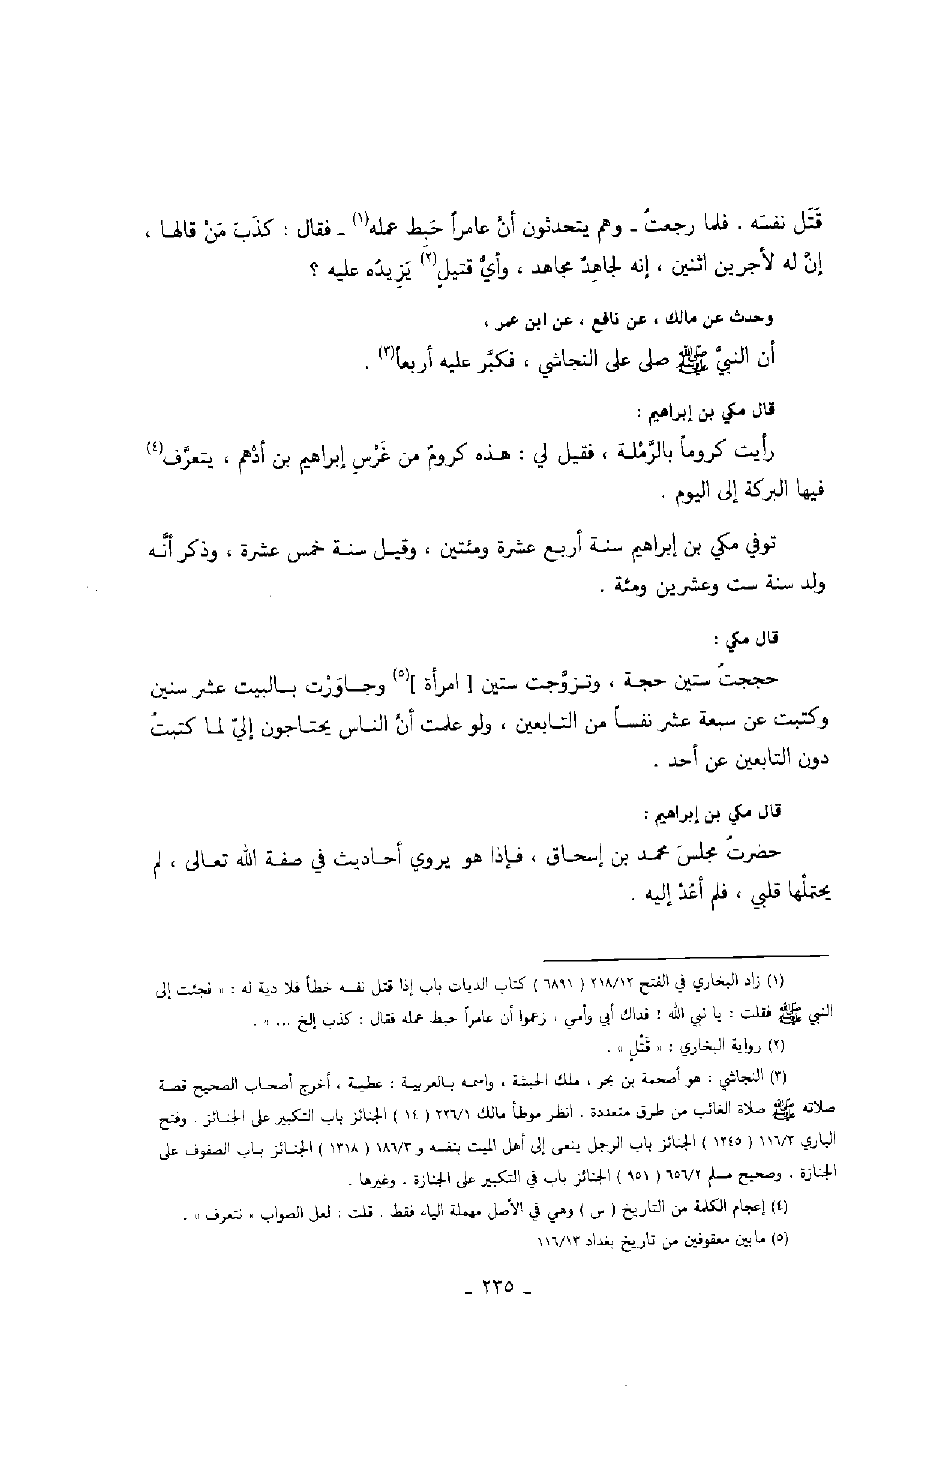 قَتَل نفسَه . فلما رجعتُ ـ وهم يتحدثون أنَّ عامراً حَبِط عمله(١) ـ فقال : كذَبَ مَنْ قالها ،
إنَّ له لأجرين اثنين ، إنه لجاهِدٌ مجاهد ، وأيُّ قتيلٍ(٢) يَزِيدُه عليه ؟
وحدث عن مالك ، عن نافع ، عن ابن عمر ،
أن النبيَّ ﷺ صلى على النجاشي ، فكبَّر عليه أربعاً(٣) .
قال مكي بن إبراهيم :
رأيت كروماً بالرَّمْلة ، فقيل لي : هذه كرومٌ من غَرْسِ إبراهيم بن أدْهم ، يتعرَّف(٤)
فيها البركة إلى اليوم .
توفي مكي بن إبراهيم سنة أربع عشرة ومئتين ، وقيل سنة خمس عشرة ، وذكر أنَّه
ولد سنة ست وعشرين ومئة .
قال مكي :
حججتُ ستين حجة ، وتزوَّجت ستين [ امرأة ](٥) وجاوَرْت بالبيت عشر سنين
وكتبت عن سبعة عشر نفساً من التابعين ، ولو علمت أنَّ الناس يحتاجون إليّ لما كتبتُ
دون التابعين عن أحد .
قال مكي بن إبراهيم :
حضرتُ مجلسَ محمد بن إسحاق ، فإذا هو يروي أحاديث في صفة الله تعالى ، لم
يحتملْها قلبي ، فلم أعُدْ إليه .
(١) زاد البخاري في الفتح ٢١٨/١٢ ( ٦٨٩١ ) كتاب الديات باب إذا قتل نفسه خطأ فلا دية له : « فجئت إلى
النبي ﷺ فقلت : يا نبي الله ! فداك أبي وأمي ، زعموا أن عامراً حبط عمله فقال : كذب إلخ ... » .
(٢) رواية البخاري : « قَتْلٍ » .
(٣) النجاشي : هو أصحمة بن بحر ، ملك الحبشة ، واسمه بالعربية : عطية ، أخرج أصحاب الصحيح قصة
صلاته ﷺ صلاة الغائب من طرق متعددة . انظر موطأ مالك ٢٢٦/١ ( ١٤ ) الجنائز باب التكبير على الجنائز . وفتح
الباري ١١٦/٣ ( ١٢٤٥ ) الجنائز باب الرجل ينعى إلى أهل الميت بنفسه و ١٨٦/٣ ( ١٣١٨ ) الجنائز باب الصفوف على
الجنازة . وصحيح مسلم ٦٥٦/٢ ( ٩٥١ ) الجنائز باب في التكبير على الجنازة . وغيرها .
(٤) إعجام الكلمة من التاريخ ( س ) وهي في الأصل مهملة الياء فقط . قلت : لعل الصواب « نتعرف » .
(٥) مابين معقوفين من تاريخ بغداد ١١٦/١٣
ـ ٢٣٥ ـ